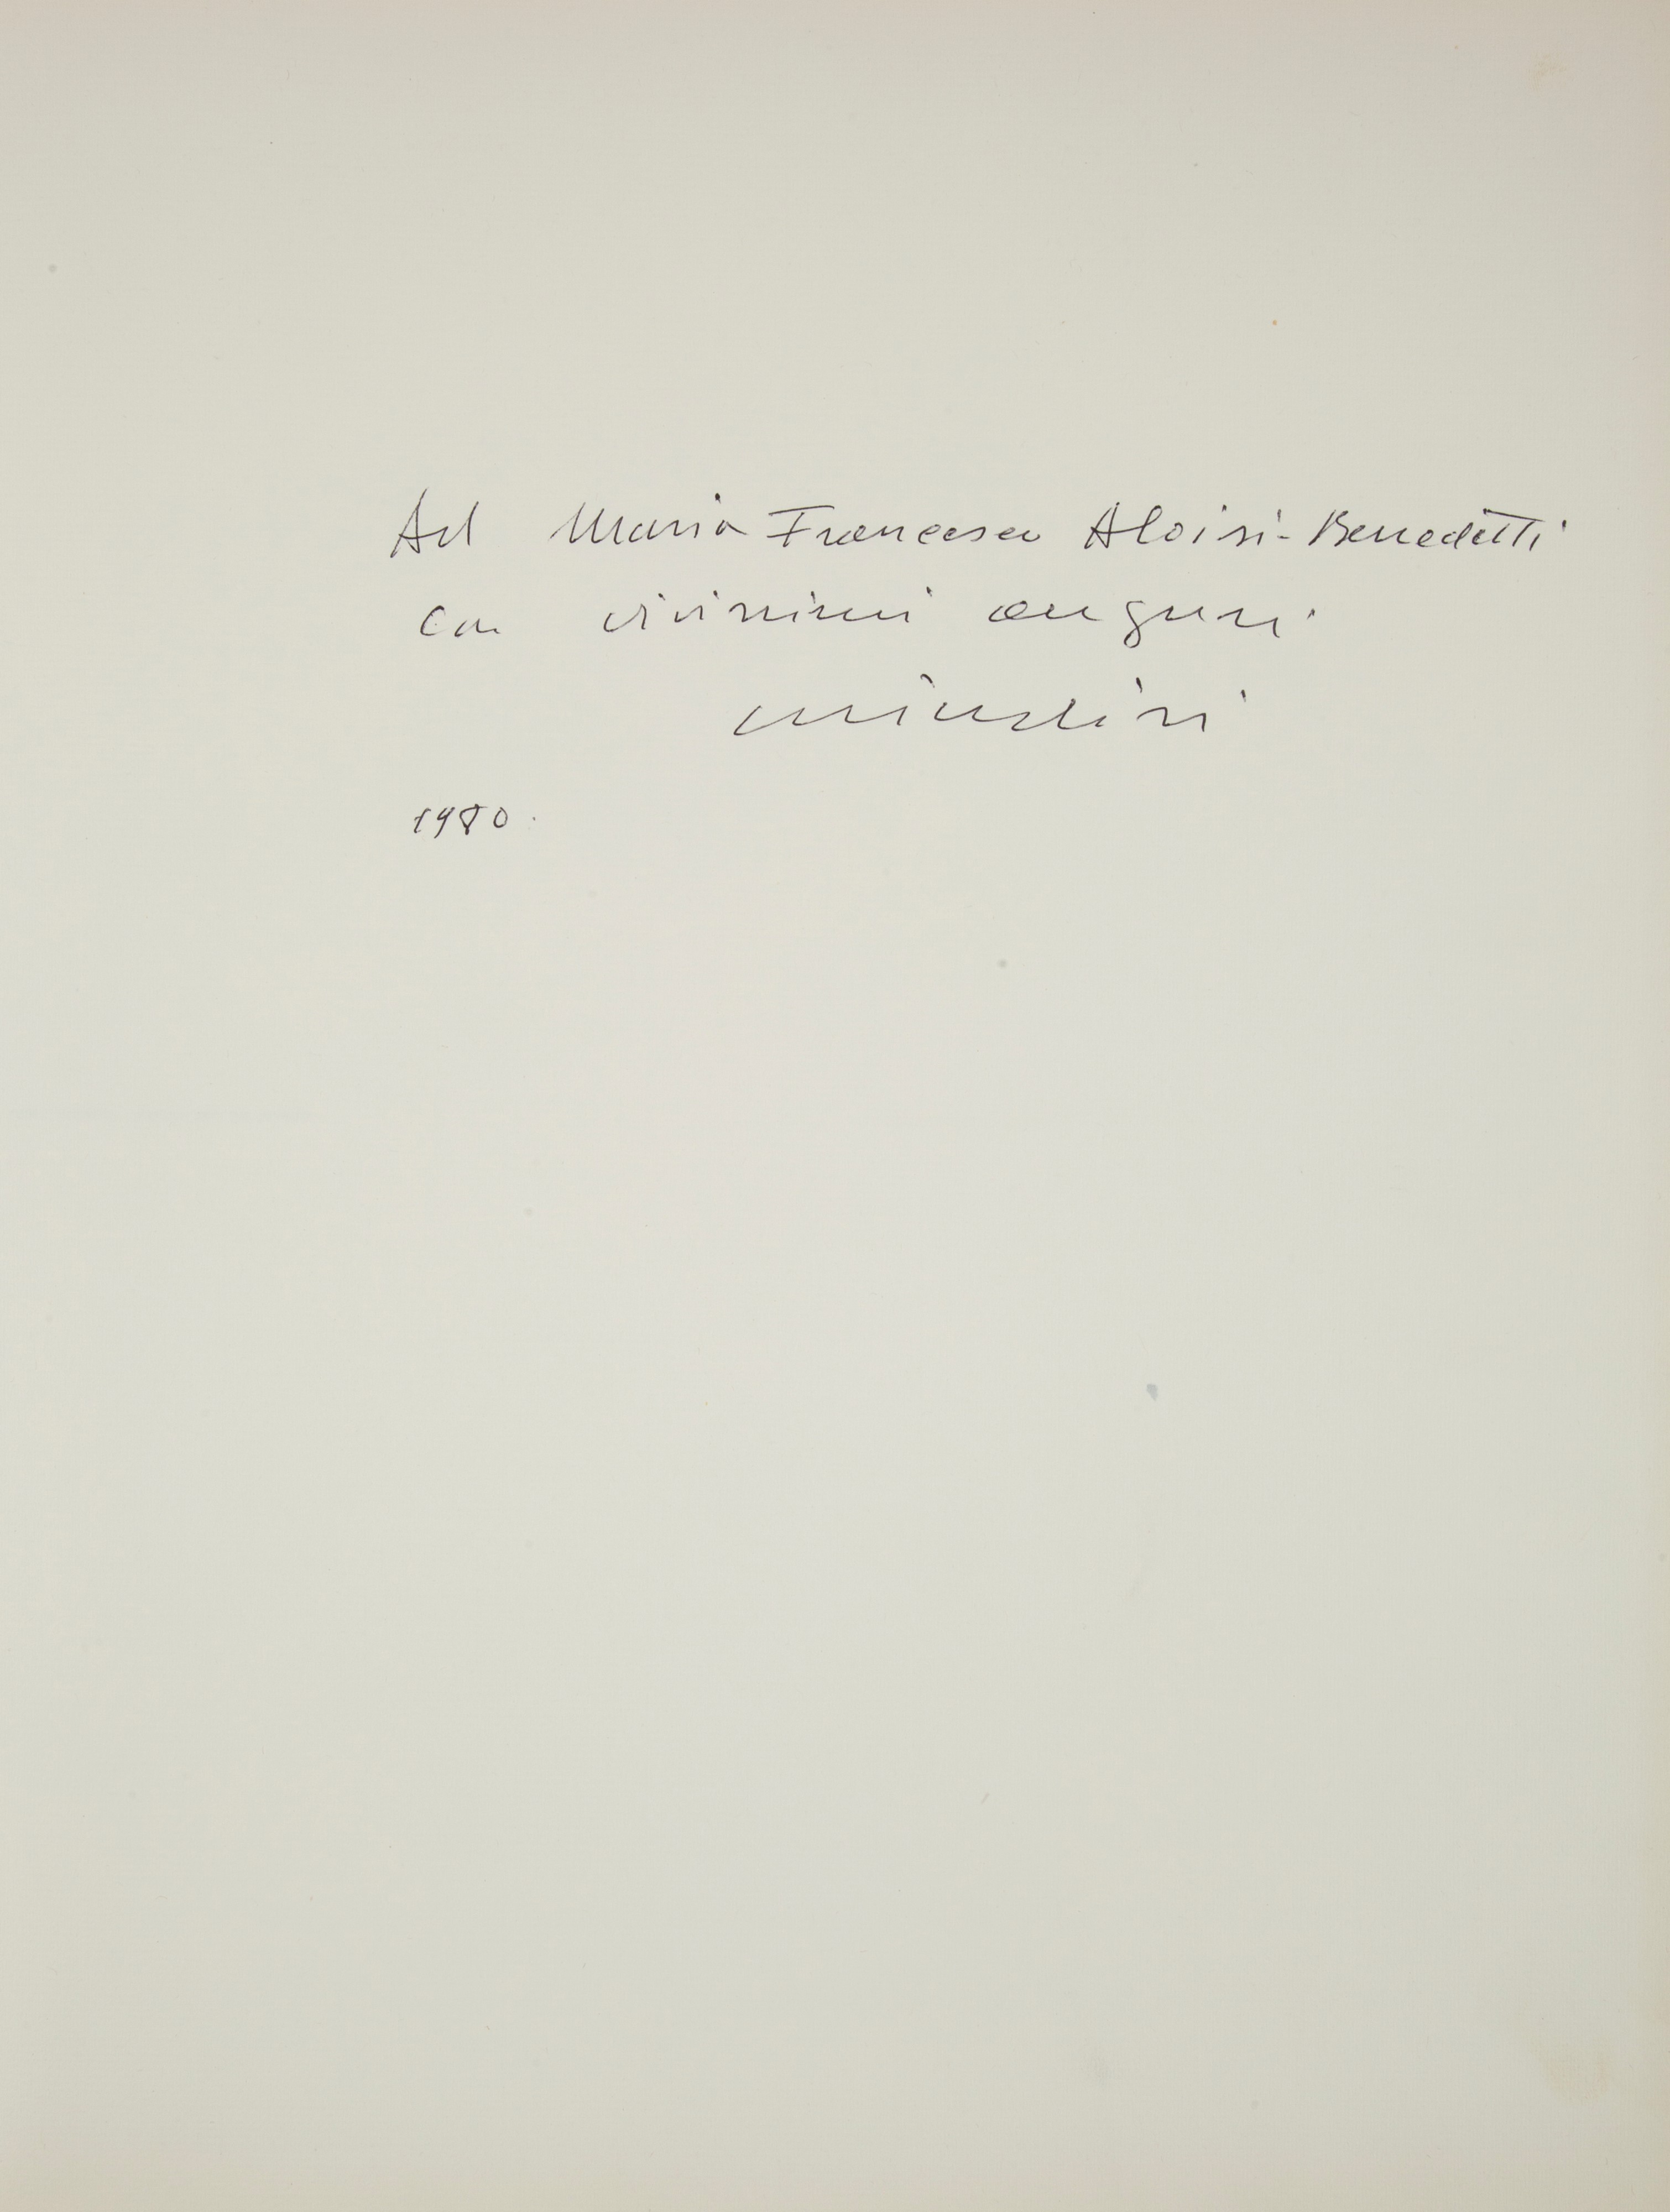 Ad Maria Francesca Aloisi-Benedetti
con vivissimi auguri
1980.